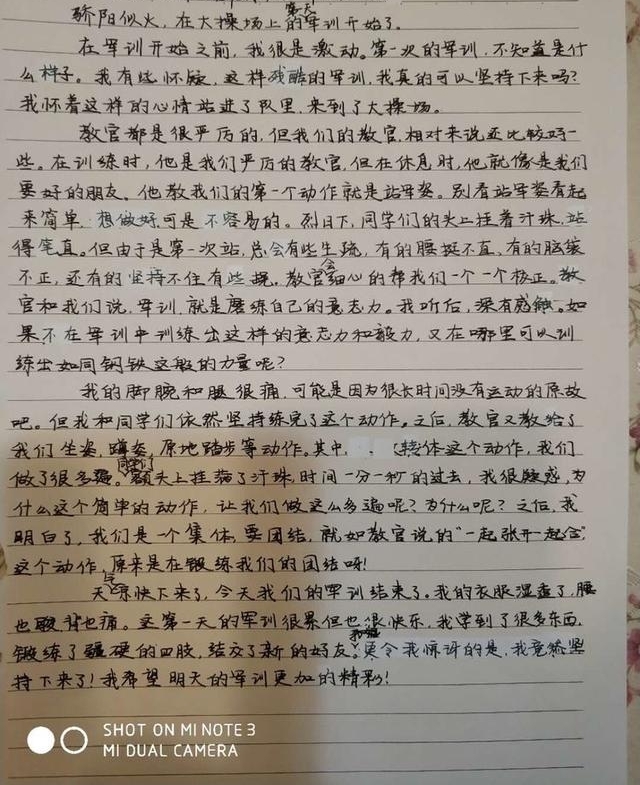 骄阳似火，在大操场上的第一天军训开始了。
在军训开始之前，我很是激动。第一次的军训，不知道是什
么样子。我有些怀疑，这样残酷的军训，我真的可以坚持下来吗？
我怀着这样的心情站进了队里，来到了大操场。
教官都是很严厉的，但我们的教官，相对来说还比较好一
些。在训练时，他是我们严厉的教官，但在休息时，他就像是我们
要好的朋友。他教我们的第一个动作就是站军姿。别看站军姿看起
来简单，想做好可是不容易的。烈日下，同学们的头上挂着汗珠，站
得笔直。但由于是第一次站，总会有些生疏，有的腰挺不直、有的脑袋
不正，还有的坚持不住有些晃。教官会细心的帮我们一个一个校正。教
官和我们说，军训，就是磨练自己的意志力。我听后，深有感触。如
果不在军训中训练出这样的意志力和毅力，又在哪里可以训
练出如同钢铁这般的力量呢？
我的脚腕和腿很痛，可能是因为很长时间没有运动的原故
吧。但我和同学们依然坚持练完了这个动作。之后，教官又教给了
我们坐姿，蹲姿，原地踏步等动作。其中，转体这个动作，我们
做了很多遍。同学们额头上挂满了汗珠，时间一分一秒的过去，我很疑惑，为
什么这个简单的动作，让我们做这么多遍呢？为什么呢？之后，我
明白了，我们是一个集体，要团结，就如教官说的“一起张开一起合”
这个动作，原来是在锻练我们的团结呀！
天气凉快下来了，今天我们的军训结束了。我的衣服湿透了，腰
也酸，背也痛。这第一天的军训很累但也很快乐，我学到了很多东西，
锻练了疆硬的四肢，结交了新的好友。更令我惊讶的是，我竟然坚
持下来了！我希望明天的军训更加的精彩！
SHOT ON MI NOTE 3
MI DUAL CAMERA